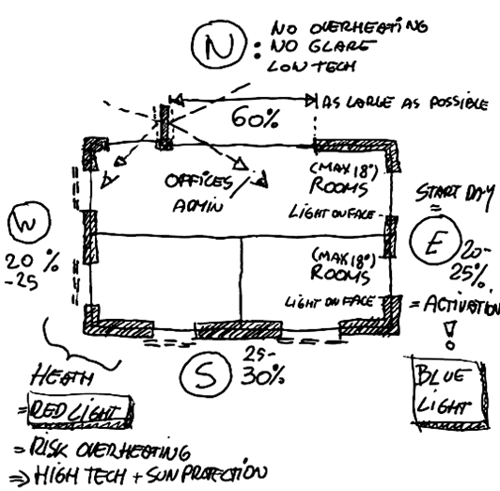 N
: NO OVERHEATING
NO GLARE
LOW TECH
60%
AS LARGE AS POSSIBLE
OFFICES
ADMIN
(MAX 18°)
ROOMS
LIGHT ON FACE
START DAY
=
W
20 %
-25
E
20-
25%
(MAX 18°)
ROOMS
LIGHT ON FACE
= ACTIVATION
!
S
25-
30%
HEATH
= RED LIGHT
= RISK OVERHEATING
⇒ HIGH TECH + SUN PROTECTION
BLUE
LIGHT